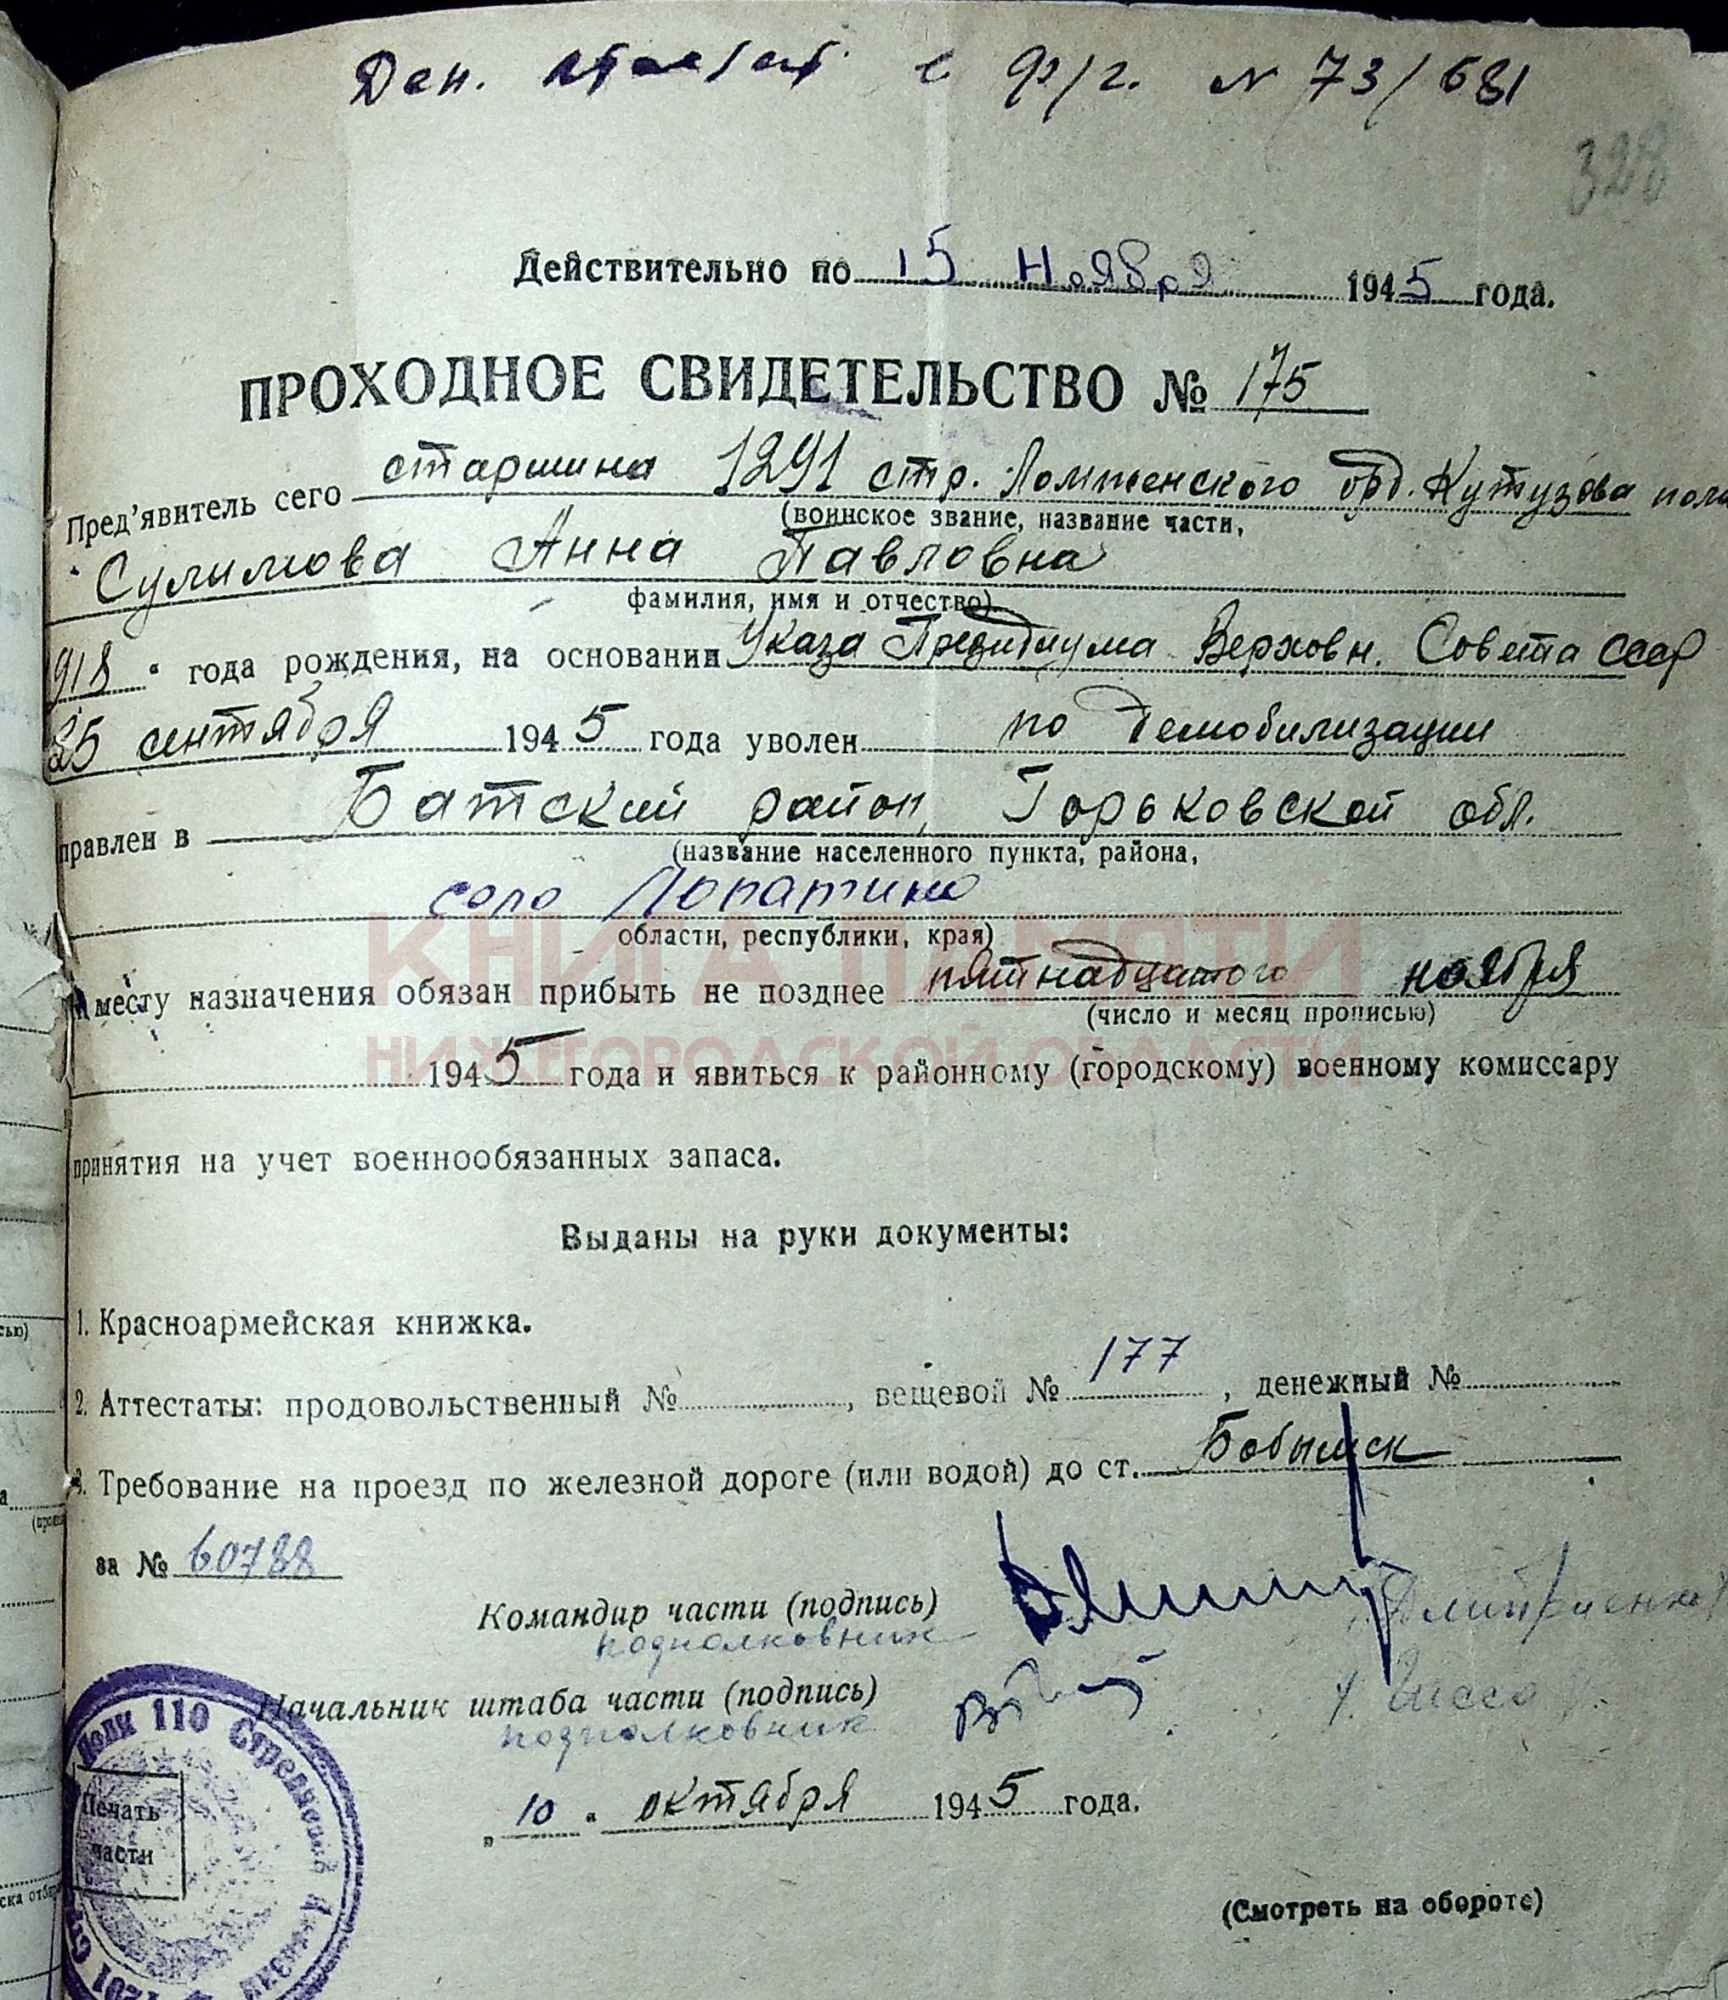 Ден. аттестат с ф/г. № 73/681
328
Действительно по 15 Ноября 1945 года.
ПРОХОДНОЕ СВИДЕТЕЛЬСТВО № 175
Пред’явитель сего старшина 1291 стр. Ломженского орд. Кутузова полк
(воинское звание, название части,
Сулимова Анна Павловна
фамилия, имя и отчество)
918 " года рождения, на основании Указа Президиума Верховн. Совета СССР
25 сентября 1945 года уволен по демобилизации
правлен в Батский район, Горьковской обл.
(название населенного пункта, района,
село Лопатино
области, республики, края)
КНИГА ПАМЯТИ
месту назначения обязан прибыть не позднее пятнадцатого ноября
(число и месяц прописью)
НИЖЕГОРОДСКОЙ ОБЛАСТИ
1945 года и явиться к районному (городскому) военному комиссару
принятия на учет военнообязанных запаса.
Выданы на руки документы:
1. Красноармейская книжка.
2. Аттестаты: продовольственный № , вещевой № 177 , денежный №
3. Требование на проезд по железной дороге (или водой) до ст. Бобыльск
за № 60788
Командир части (подпись)
подполковник
Начальник штаба части (подпись)
подполковник
110 Стрелковый
Печать
части
1201
„ 10 " октября 1945 года.
(Смотреть на обороте)